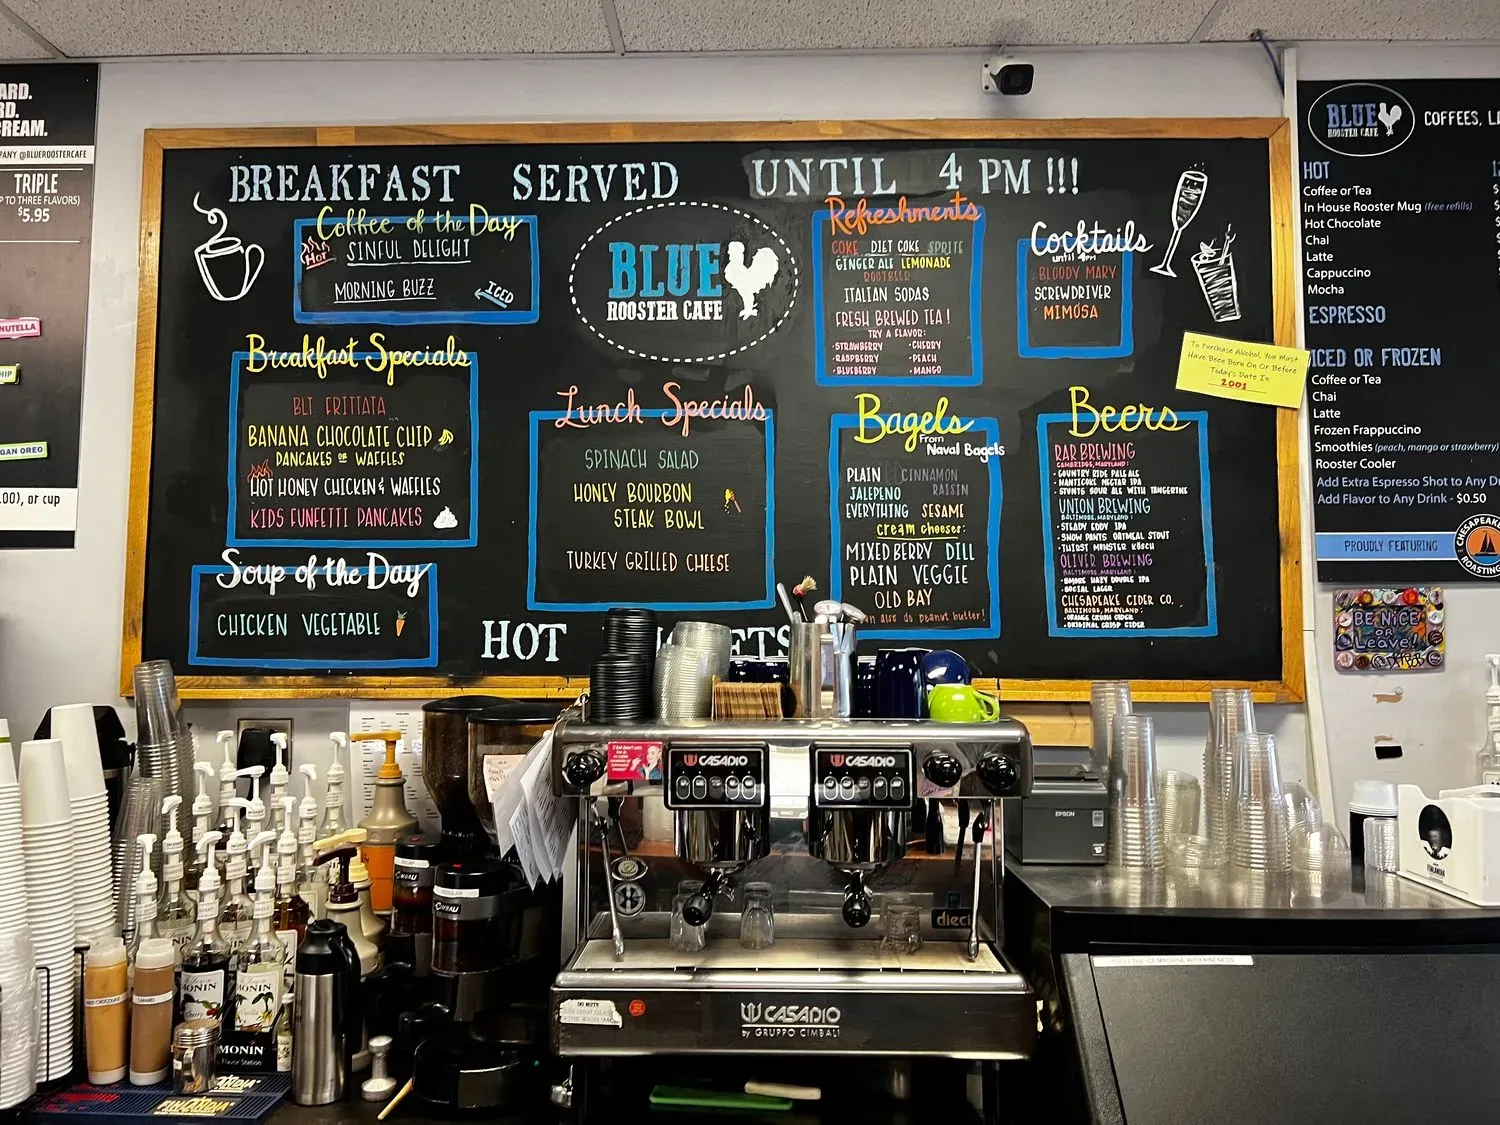 ARD.
RD.
REAM.
PANY @BLUEROOSTERCAFE
TRIPLE
P TO THREE FLAVORS)
$5.95
NUTELLA
HIP
GAN OREO
.00), or cup
BREAKFAST SERVED UNTIL 4 PM !!!
Coffee of the Day
Hot
SINFUL DELIGHT
MORNING BUZZ
ICED
Breakfast Specials
BLT FRITTATA
BANANA CHOCOLATE CHIP
PANCAKES OR WAFFLES
HOT HONEY CHICKEN & WAFFLES
KIDS FUNFETTI PANCAKES
Soup of the Day
CHICKEN VEGETABLE
BLUE
ROOSTER CAFE
Lunch Specials
SPINACH SALAD
HONEY BOURBON
STEAK BOWL
TURKEY GRILLED CHEESE
HOT
ETS
Refreshments
COKE DIET COKE SPRITE
GINGER ALE LEMONADE
ROOTBEER
ITALIAN SODAS
FRESH BREWED TEA!
TRY A FLAVOR:
·STRAWBERRY ·CHERRY
·RASPBERRY ·PEACH
·BLUEBERRY ·MANGO
Cocktails
until 4pm
BLOODY MARY
SCREWDRIVER
MIMOSA
To Purchase Alcohol, You Must
Have Been Born On Or Before
Today's Date In
2001
Bagels
From
Naval Bagels
PLAIN CINNAMON
RAISIN
JALEPENO
EVERYTHING SESAME
cream cheeses:
MIXED BERRY DILL
PLAIN VEGGIE
OLD BAY
an also do peanut butter!
Beers
RAR BREWING
CAMBRIDGE, MARYLAND:
·COUNTRY RIDE PALE ALE
·NANTICOKE NECTAR IPA
·STUNTS SOUR ALE WITH TANGERINE
UNION BREWING
BALTIMORE, MARYLAND:
·STEADY EDDY IPA
·SNOW PANTS OATMEAL STOUT
·THIRST MONSTER KÖSCH
OLIVER BREWING
BALTIMORE, MARYLAND:
·BMORE HAZY DOUBLE IPA
·SOCIAL LAGER
CHESAPEAKE CIDER CO.
BALTIMORE, MARYLAND:
·ORANGE CRUSH CIDER
·ORIGINAL CRISP CIDER
BLUE
ROOSTER CAFE
COFFEES, LA
HOT
12
Coffee or Tea
In House Rooster Mug (free refills)
Hot Chocolate
Chai
Latte
Cappuccino
Mocha
ESPRESSO
ICED OR FROZEN
Coffee or Tea
Chai
Latte
Frozen Frappuccino
Smoothies (peach, mango or strawberry)
Rooster Cooler
Add Extra Espresso Shot to Any Dr
Add Flavor to Any Drink - $0.50
PROUDLY FEATURING
CHESAPEAKE
ROASTING
BE NiCE
OR
Leave!
CASADIO
CASADIO
EPSON
DECAF
CIMBALI
CIMBALI
dieci
CASADIO
by GRUPPO CIMBALI
CARAMEL
MONIN
MONIN
MONIN
Flavor Station
FINLANDIA